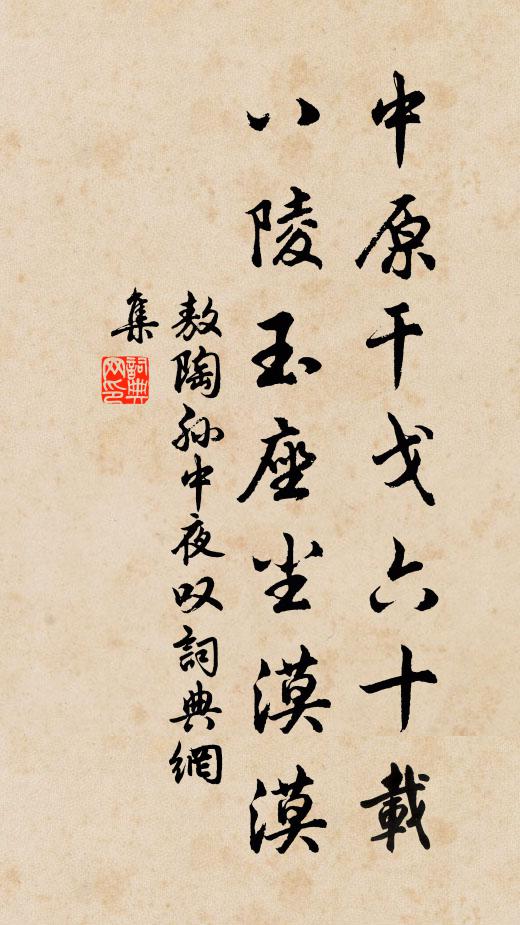 中原干戈六十載
八陵玉座尘漠漠
敖陶孙中夜叹詞典網
集
詞典网印